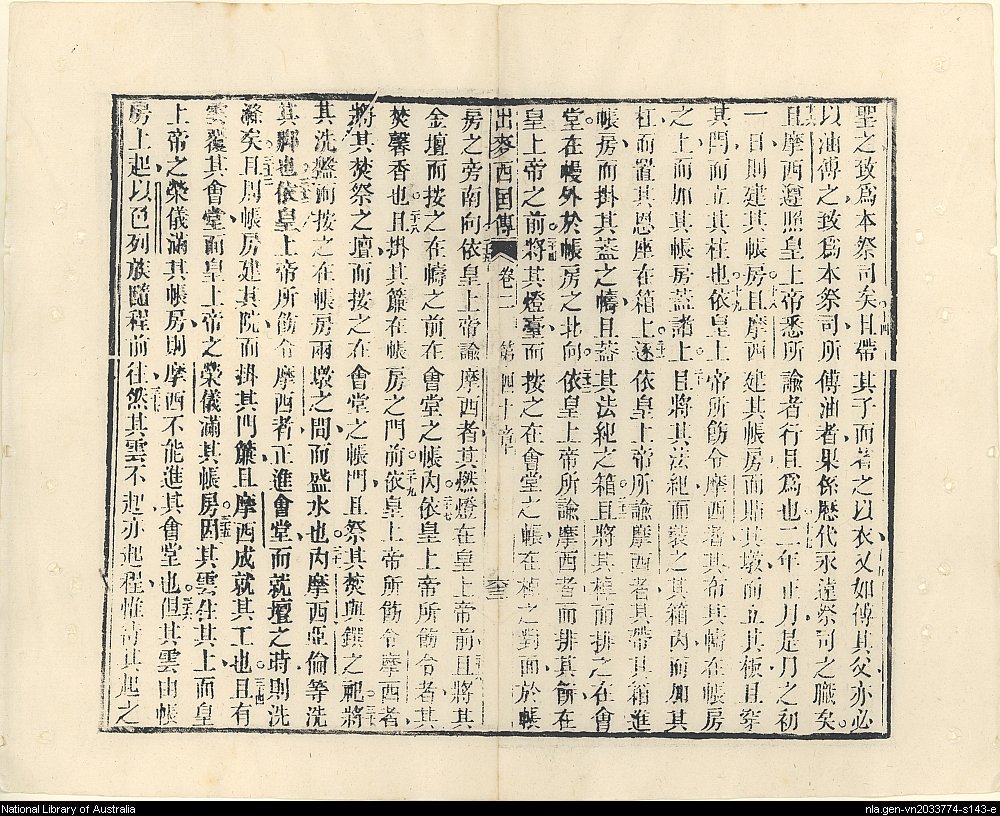 聖之致爲本祭司矣且帶其子而著之以衣又如傅其父亦必
以油傅之致爲本祭司所傅油者果係歷代永遠祭司之職矣
且摩西遵照皇上帝悉所諭者行且爲也二年正月是月之初
一日則建其帳房且摩西建其帳房而貼其墩而立其板且穿
其閂而立其柱也依皇上帝所飭令摩西者其布其幬在帳房
之上而加其帳房蓋諸上且將其法紀而裝之其箱內而加其
杠而置其恩座在箱上遂依皇上帝所諭摩西者其帶其箱進
帳房而掛其蓋之幬且蓋其法紀之箱且將其棹而排之在會
堂在幔外於帳房之北向依皇上帝所諭摩西者而排其餅在
皇上帝之前將其燈臺而按之在會堂之帳在棹之對面於帳
出麥西國傳 卷二 第四十章
房之旁南向依皇上帝諭摩西者其燃燈在皇上帝前且將其
金壇而按之在幬之前在會堂之帳內依皇上帝所飭令者其
焚馨香也且掛其簾在帳房之門前依皇上帝所飭令摩西者
將其焚祭之壇而按之在會堂之帳門且祭其焚與饌之祀將
其洗盤而按之在帳房兩墩之間而盛水也內摩西亞倫等洗
其腳也依皇上帝所飭令摩西者正進會堂而就壇之時則洗
滌矣且周帳房建其院而掛其門簾且摩西成就其工也且有
雲覆其會堂而皇上帝之榮儀滿其帳房因其雲住其上而皇
上帝之榮儀滿其帳房則摩西不能進其會堂也但其雲由帳
房上起以色列族隨程前往然其雲不起亦起程惟待其起之
National Library of Australia
nla.gen-vn2033774-s143-e